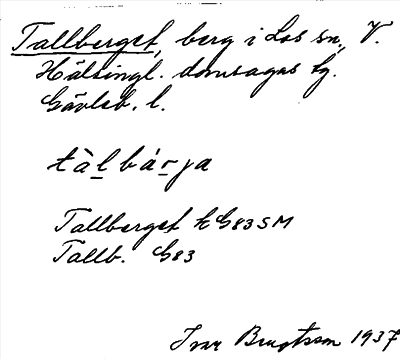 Tallberget, berg i Los sn, V.
Hälsingl. domsagas tg.
Gävleb. l.
tàlbárja
Tallberget kG83SM
Tallb. G83
Ivar Bengtsson 1937